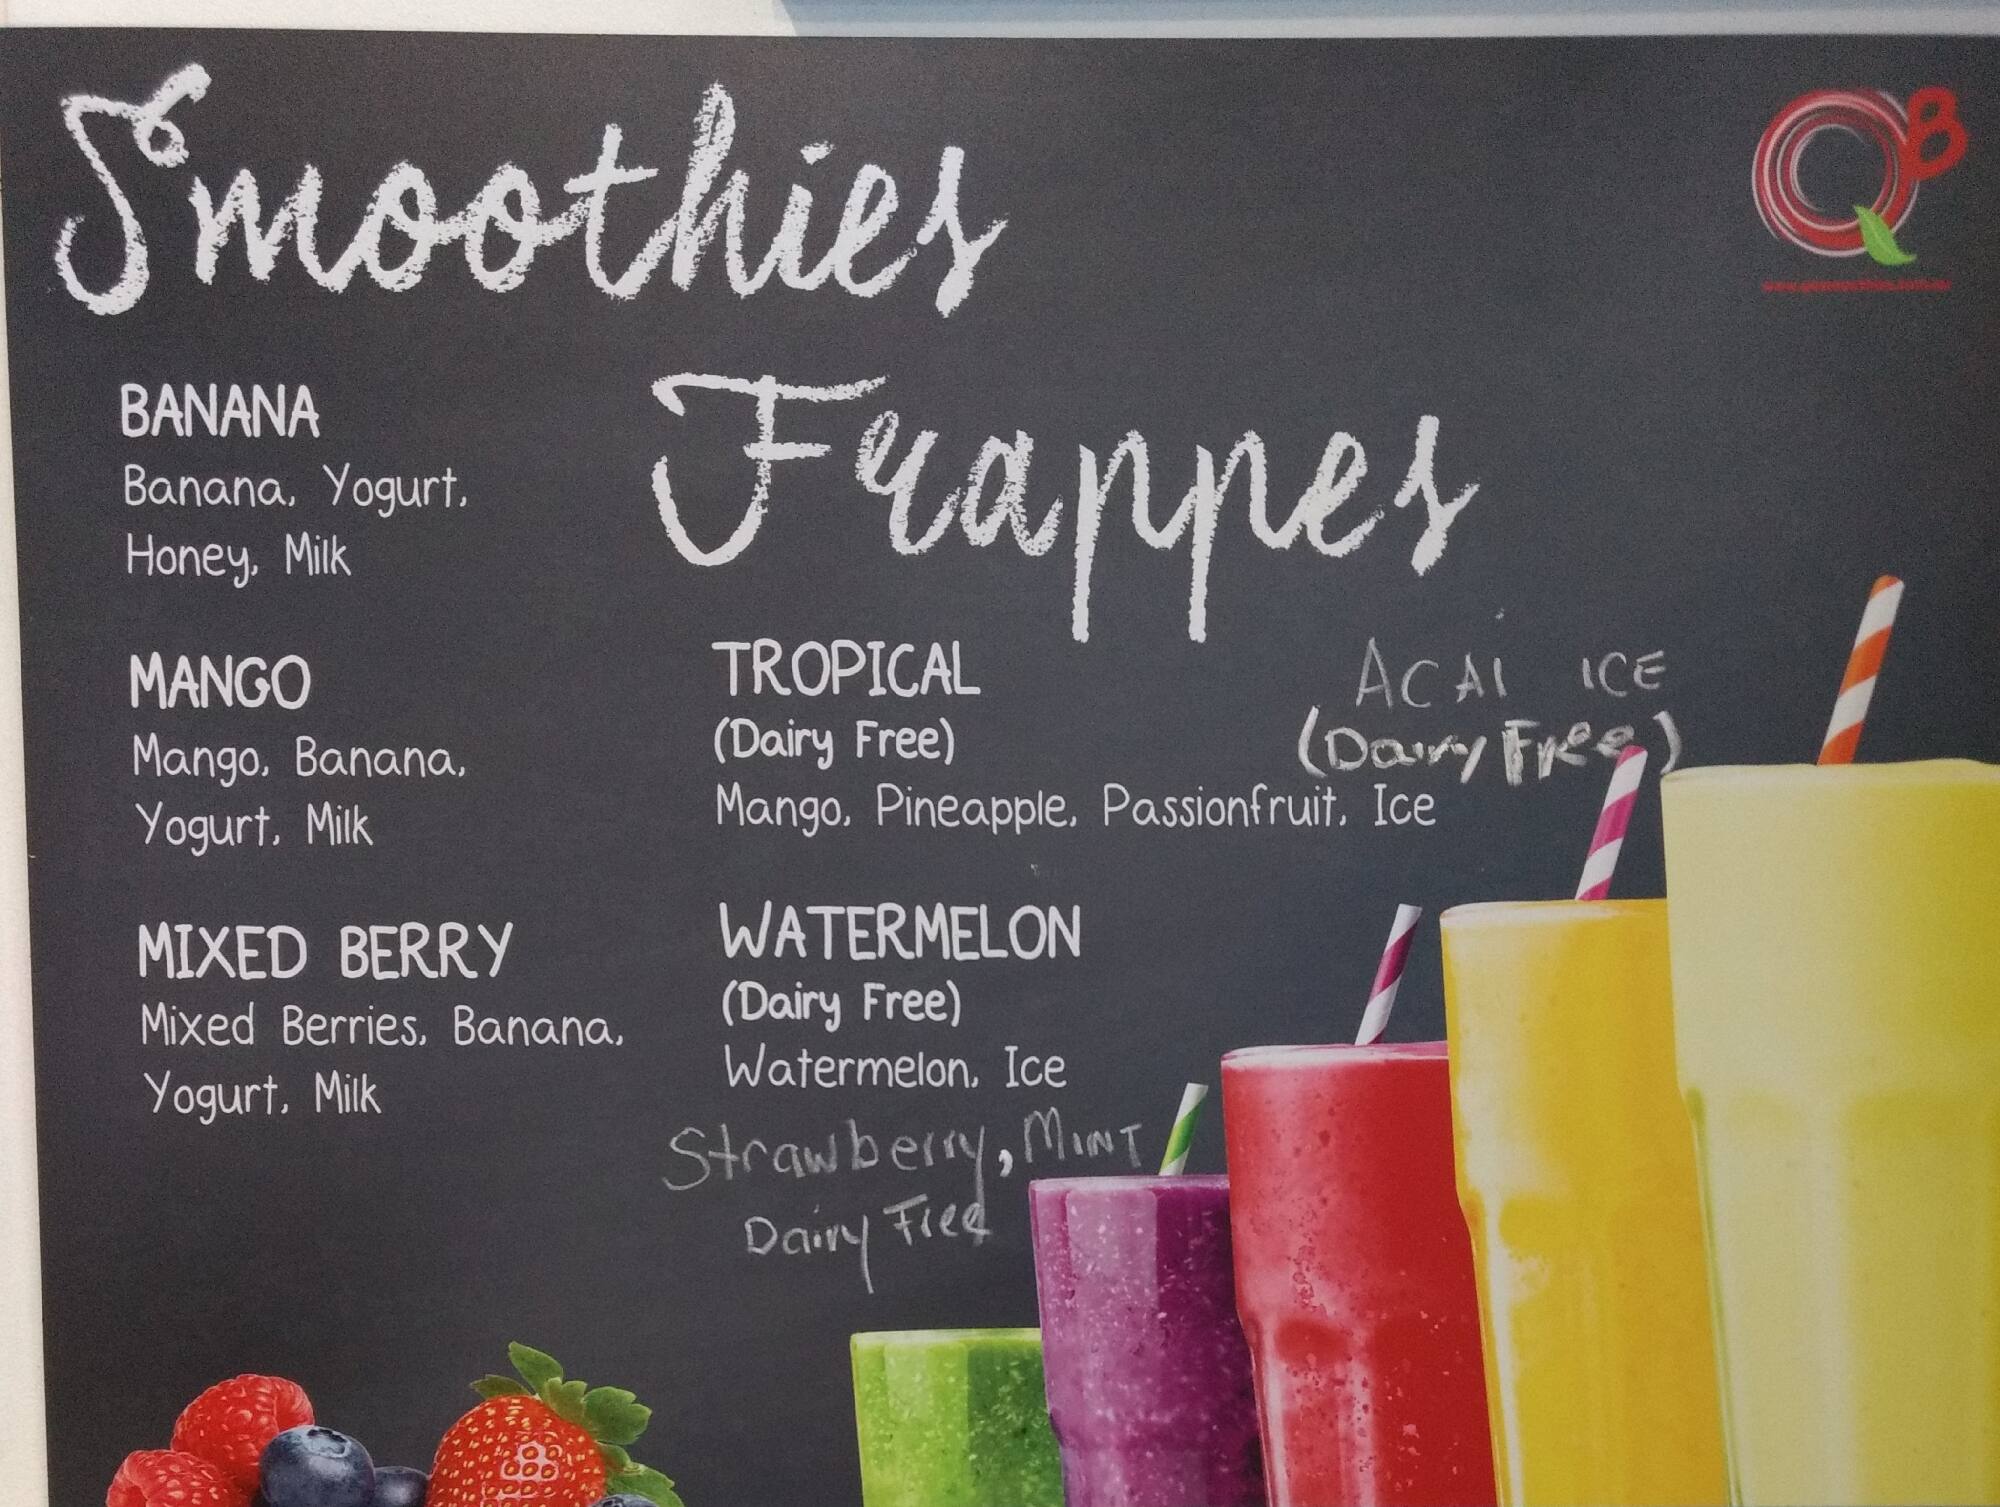 Smoothies
QB
BANANA
Banana, Yogurt,
Honey, Milk
MANGO
Mango, Banana,
Yogurt, Milk
MIXED BERRY
Mixed Berries, Banana,
Yogurt, Milk
Frappes
TROPICAL
(Dairy Free)
Mango, Pineapple, Passionfruit, Ice
ACAI ICE
(Dairy Free)
WATERMELON
(Dairy Free)
Watermelon, Ice
Strawberry, MINT
Dairy Free